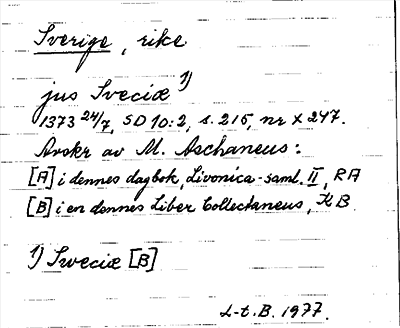 Sverige, rike
jus Sveciæ 1)
1373 24/7, SD 10:2, s. 215, nr X 247.
Avskr av M. Aschaneus:
[A] i dennes dagbok, Livonica-saml. II, RA
[B] i en dennes Liber Collectaneus, KB.
1) Sweciæ [B]
L-t.B. 1977.